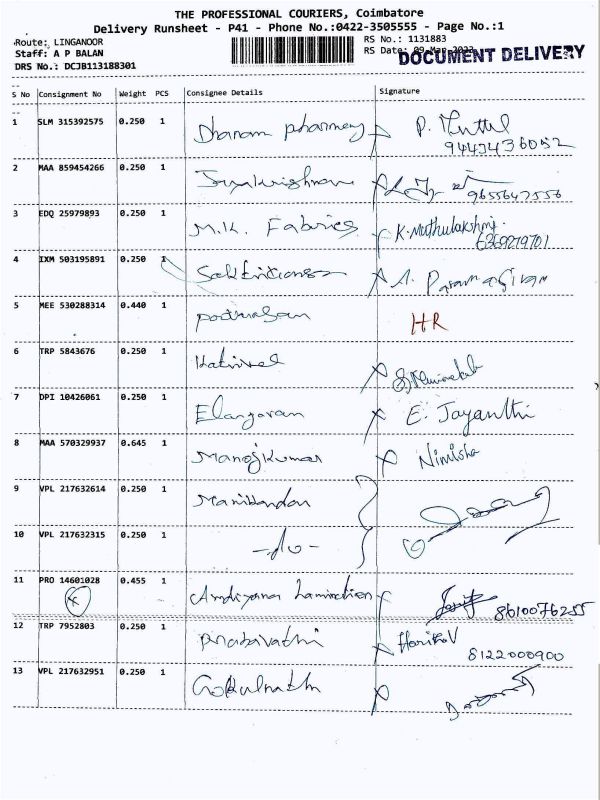 THE PROFESSIONAL COURIERS, Coimbatore
Delivery Runsheet - P41 - Phone No.:0422-3505555 - Page No.:1
Route: LINGANOOR
RS No.: 1131883
Staff: A P BALAN
RS Date: 09-Mar-2023
DOCUMENT DELIVERY
DRS No.: DCJB113188301
S No Consignment No Weight PCS Consignee Details Signature
1 SLM 315392575 0.250 1 Dhanam pharmacy P. Muttul
9443436052
2 MAA 859454266 0.250 1 Jeyakrishnan
9655647556
3 EDQ 25979893 0.250 1 M.K. Fabrics K. Muthulakshmi
6369219701
4 IXM 503195891 0.250 1 A. Paramasivan
5 MEE 530288314 0.440 1 HR
6 TRP 5843676 0.250 1 Kathirvel
7 DPI 10426061 0.250 1 Elangovan E. Jayanthi
8 MAA 570329937 0.645 1 Manojkumar Nimisha
9 VPL 217632614 0.250 1 Manikandan
10 VPL 217632315 0.250 1 -do-
11 PRO 14601028 0.455 1 Lamination
8610076255
12 TRP 7952803 0.250 1 Prabavathi
8122000900
13 VPL 217632951 0.250 1 Gokulnath